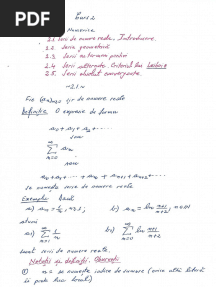 PDF
Curs 2
Numerice
2.1 Serii de numere reale. Introducere.
2.2 Seria geometrică
2.3 Serii cu termeni pozitivi
2.4 Serii alternate. Criteriul lui Leibniz
2.5. Serii absolut convergente.
~2.1~
Fie (an)n≥0 șir de numere reale
Definiție O expresie de forma
a0 + a1 + a2 + ....
sau
∞ Σ n=0 an
sau
a0 + a1 + ... + an + an+1 + an+2 + ....
se numește serie de numere reale
Exemple: Dacă
a) an = 1/n, n≥1; b) an = ln n+1/n+2, n∈N
atunci
a) ∞ Σ n=1 1/n b) ∞ Σ n=0 ln n+1/n+2
sunt serii de numere reale.
Notații și definiții. Observații
① n = se numește indice de sumare (orice altă literă
se poate folosi)